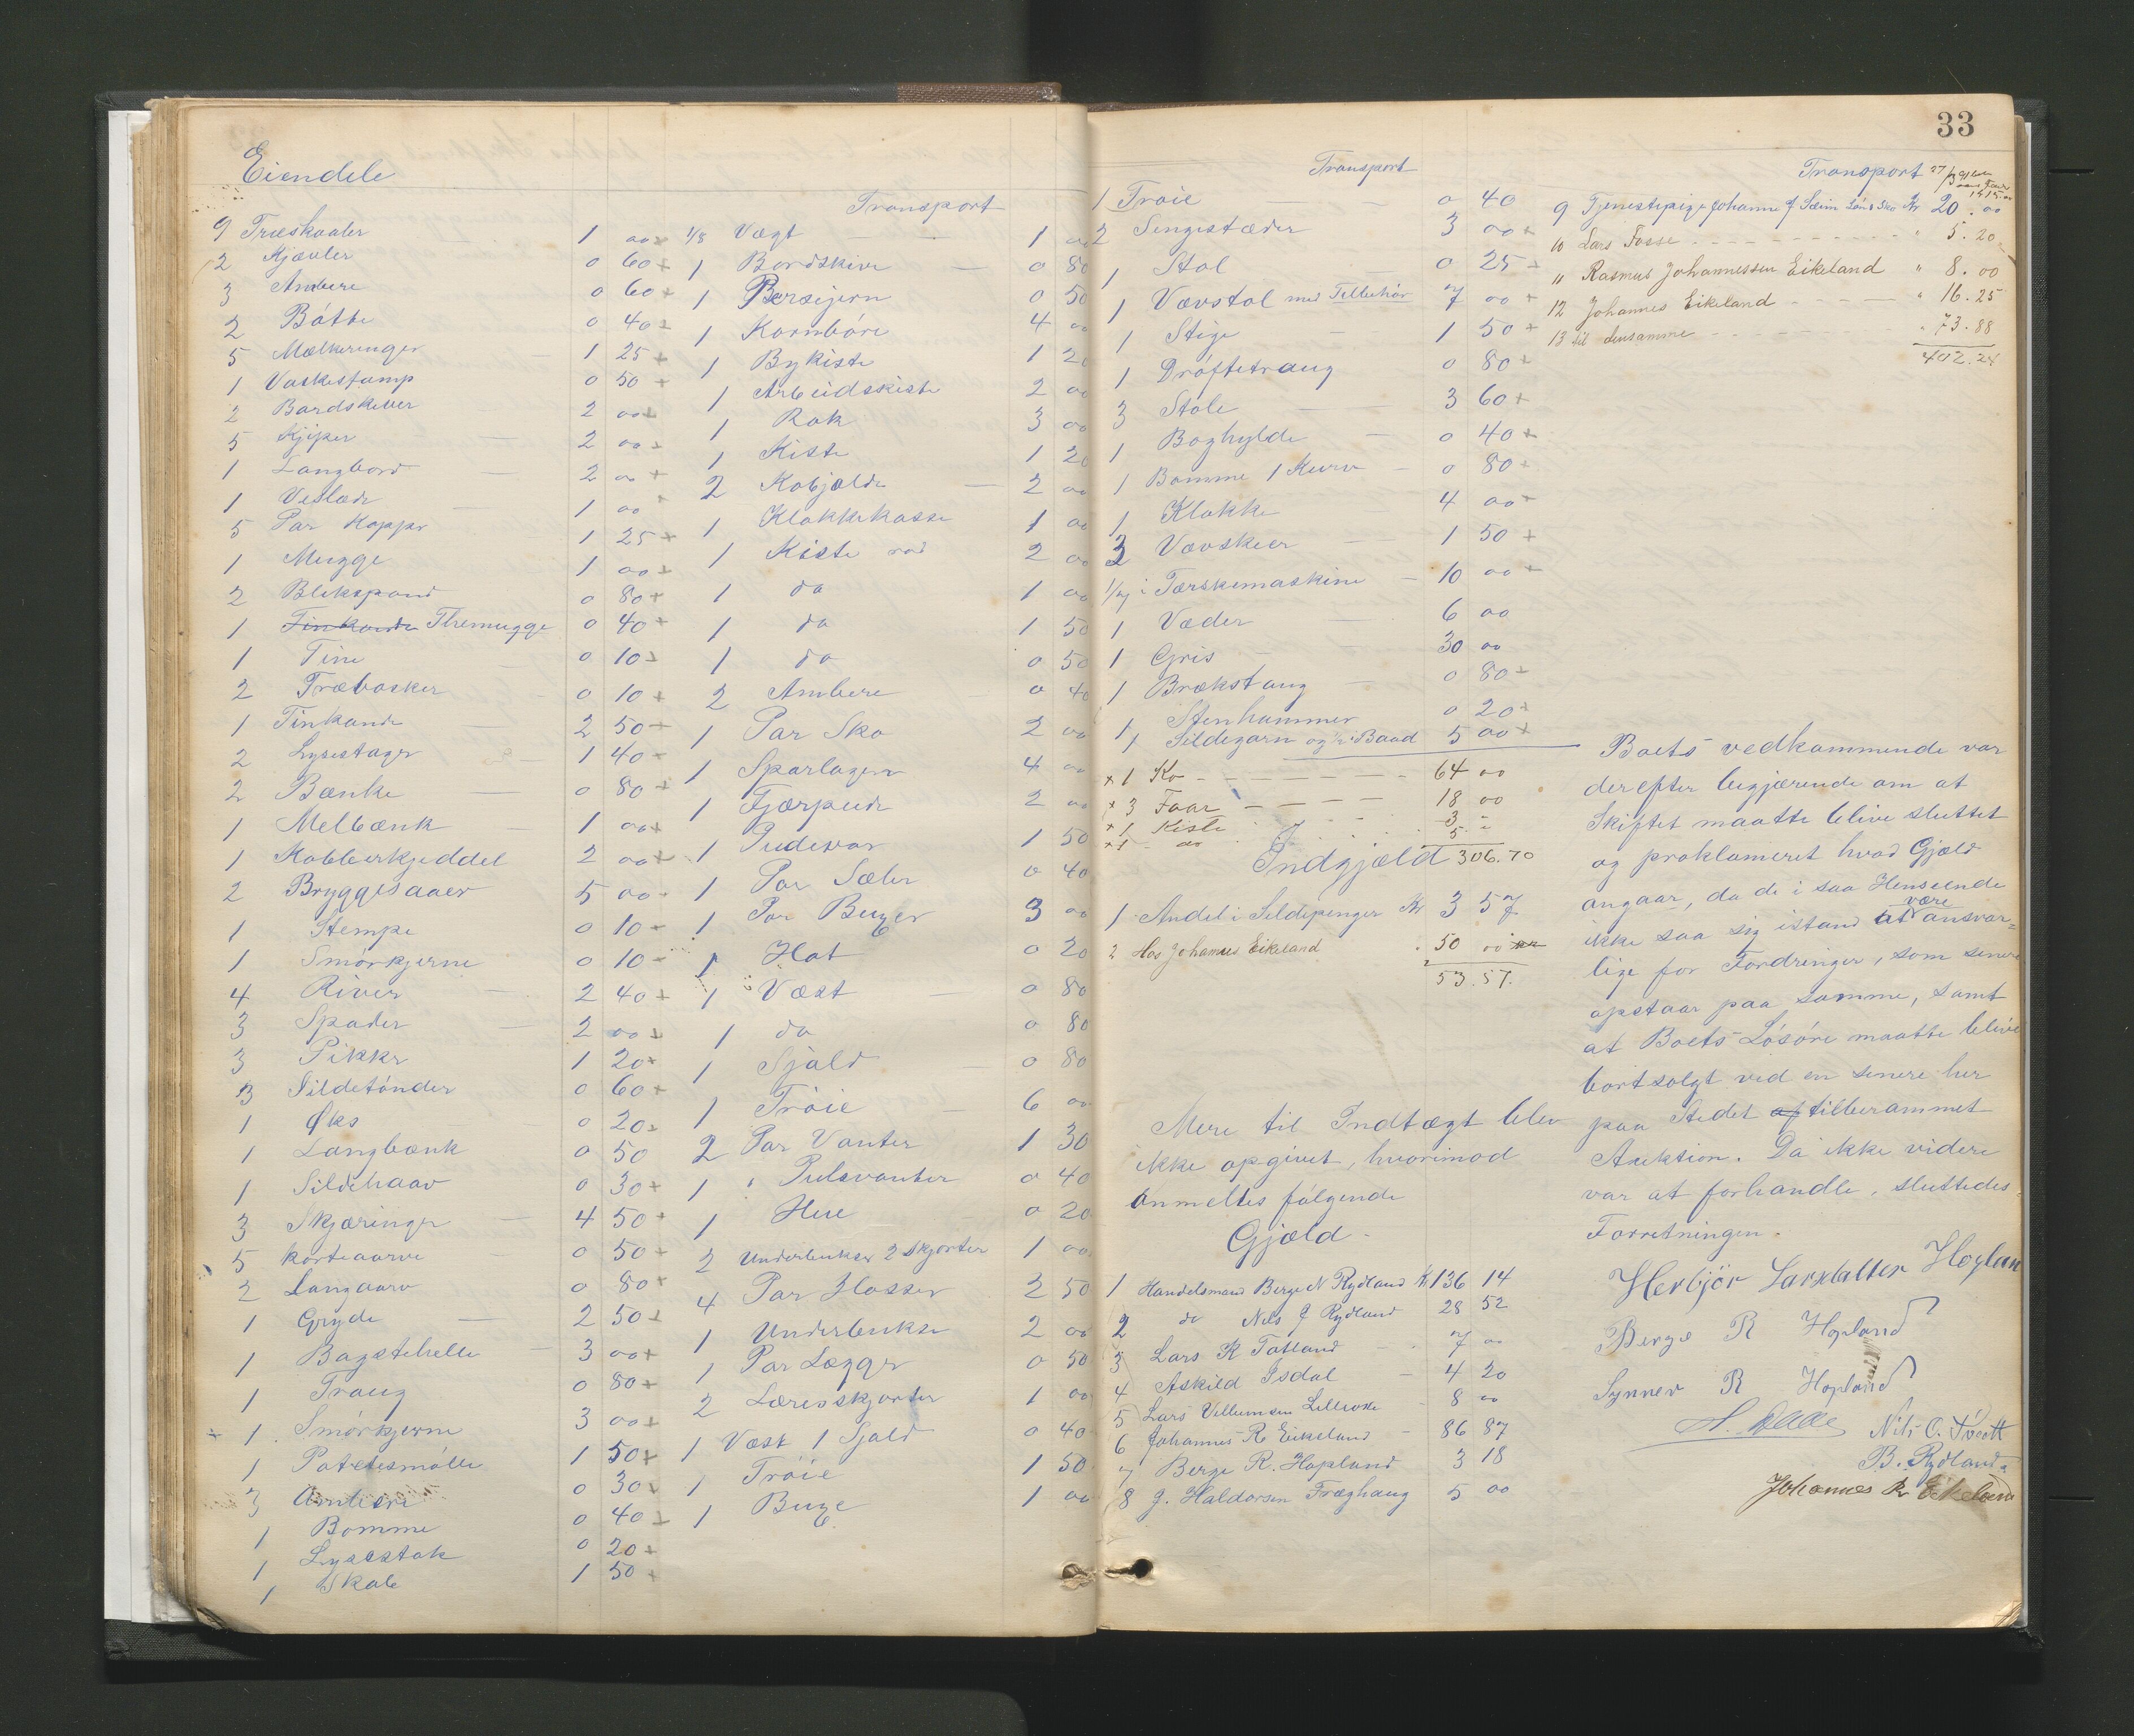 Eiendele
9 Træskaaler 1 00
2 Kjævler 0 60
3 Ambere 0 60
2 Bøtte 0 40
5 Mælkeringer 1 25
1 Vaskestamp 0 50
2 Bordskiver 2 00
5 Kjiper 2 00
1 Langbord 2 00
1 1 00
5 Par Kopper 1 25
1 Mugge 1 00
2 Blikspand 0 80
1 Themugge 0 40
1 Tine 0 10
2 Træbasker 0 10
1 Tinkande 2 50
2 Lysestager 1 40
2 Bænke 0 80
1 Melbænk 1 00
1 Kobberkjeddel 2 00
2 Bryggesaaer 5 00
1 Stempe 0 10
1 Smørkjerne 0 10
4 River 2 40
3 Spader 2 00
3 Pikker 1 20
3 Sildetønder 0 60
1 Øks 0 20
1 Langbænk 0 50
1 Sildehaav 0 30
3 Skjæringer 4 50
5 korteaarer 0 50
2 Langaarer 0 80
1 Gryde 2 50
1 Bagstehelle 3 00
1 Traug 0 80
1 Smørkjerne 3 00
1 Potetesmølle 1 50
3 Ambere 0 30
1 Bomme 0 40
1 Lysestak 0 20
1 Skab 1 50
Transport
1/8 Vægt 1 00
1 Bordskive 0 80
1 Persejern 0 50
1 Kornbøre 4 00
1 Bykiste 1 20
1 Arbeidskiste 2 00
1 Rok 3 00
1 Kiste 1 20
2 Kobjelde 2 00
1 Klokkekasse 1 00
1 Kiste rød 2 00
1 do 1 00
1 do 1 50
1 do 0 50
2 Ambere 0 40
1 Par Sko 2 00
1 Sparlagen 4 00
1 Fjærpude 2 00
1 Pudevar 1 50
1 Par Sæler 0 40
1 Par Buxer 3 00
1 Hat 0 20
1 Væst 0 80
1 do 0 80
1 Sjald 0 80
1 Trøie 6 00
2 Par Vanter 1 30
1 " Pulsvanter 0 40
1 Hue 0 20
2 Underbukser 2 skjorter 1 00
4 Par Hosser 2 50
1 Underbukse 2 00
1 Par Lægger 0 50
2 Læreisskjorter 1 00
1 Væst 1 Sjald 0 40
1 Trøie 1 50
1 Buxe 1 00
33
Transport
1 Trøie 0 40
2 Sengestæder 3 00
1 Stol 0 25
1 Vævstol med Tilbehør 7 00
1 Stige 1 50
1 Drøftetraug 0 80
3 Stole 3 60
1 Boghylde 0 40
1 Bomme 1 Kurv 0 80
1 Klokke 4 00
3 Vævskeer 1 50
i Tærskemaskine 10 00
1 Væder 6 00
1 Gris 30 00
1 Brækstang 0 80
1 Stenhammer 0 20
1 Sildegarn og 1/2 i Baad 5 00
x 1 Ko 64 00
x 3 Faar 18 00
x 1 Kiste 3 "
x 1 do 5 "
Indgjæld 306.70
1 Andel i Sildepenger Kr 3 57
2 Hos Johannes Eikeland 50 00
53.57.
Mere til Indtægt blev
ikke opgivet, hvorimod
anmeltes følgende
Gjæld.
1 Handelsmand Berge N Rydland Kr 136 14
2 do Nils J Rydland 28 52
3 Lars K Totland 7 00
4 Askild Isdal 4 20
5 Lars Villumsen 8 00
6 Johannes R. Eikeland 86 87
7 Berge R. Hopland 3 18
8 J. Haldorsen Træghaug 5 00
Transport
9 Tjenestepige Johanne J Sæim Løn & Sko Kr 20.00
10 Lars Fosse " 5.20
11 Rasmus Johannessen Eikeland " 8.00
12 Johannes Eikeland " 16.25
13 til densamme " 73.88
402.24
Boets vedkommende var
derefter begjærende om at
Skiftet maatte blive sluttet
og proklameret hvad Gjæld
angaar, da de i saa Henseende
ikke saa sig istand at være ansvar=
lige for Fordringer, som senere
opstaar paa samme, samt
at Boets Løsøre maatte blive
bortsolgt ved en senere her
paa Stedet af tilberammet
Auktion. Da ikke videre
var at forhandle, sluttedes
Forretningen.
Herbjør Larsdatter Hoplan
Berge R Hopland
Synnev R Hopland
Nils O.
B. Rydland
Johannes R Eikeland